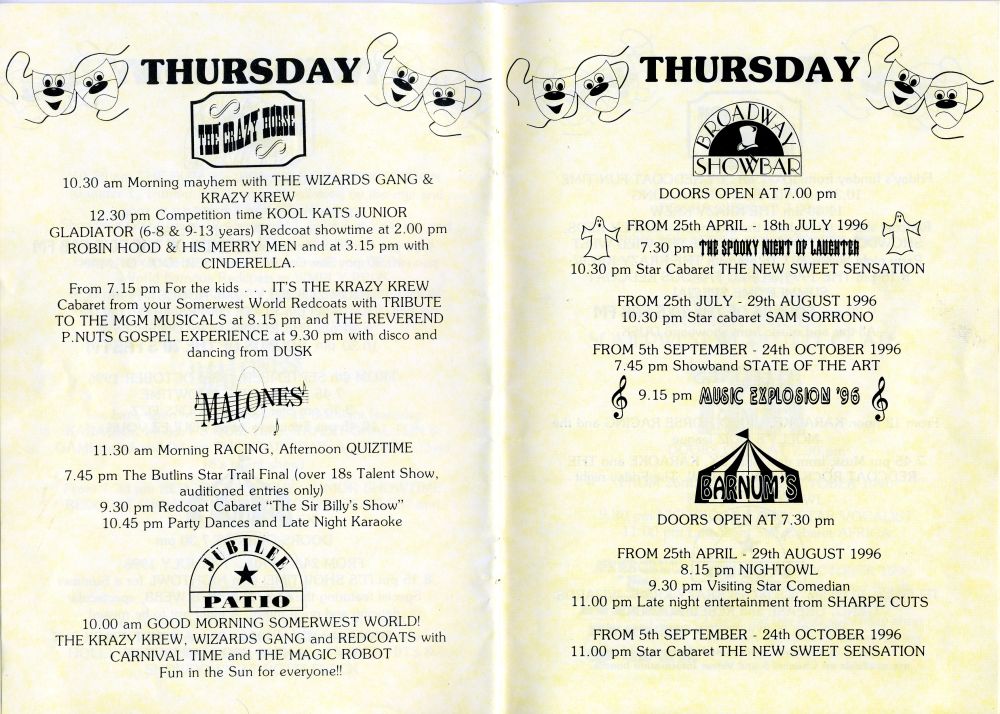 THURSDAY
THE CRAZY HORSE
10.30 am Morning mayhem with THE WIZARDS GANG &
KRAZY KREW
12.30 pm Competition time KOOL KATS JUNIOR
GLADIATOR (6-8 & 9-13 years) Redcoat showtime at 2.00 pm
ROBIN HOOD & HIS MERRY MEN and at 3.15 pm with
CINDERELLA.
From 7.15 pm For the kids . . . IT'S THE KRAZY KREW
Cabaret from your Somerwest World Redcoats with TRIBUTE
TO THE MGM MUSICALS at 8.15 pm and THE REVEREND
P.NUTS GOSPEL EXPERIENCE at 9.30 pm with disco and
dancing from DUSK
MALONES
11.30 am Morning RACING, Afternoon QUIZTIME
7.45 pm The Butlins Star Trail Final (over 18s Talent Show,
auditioned entries only)
9.30 pm Redcoat Cabaret "The Sir Billy's Show"
10.45 pm Party Dances and Late Night Karaoke
JUBILEE
PATIO
10.00 am GOOD MORNING SOMERWEST WORLD!
THE KRAZY KREW, WIZARDS GANG and REDCOATS with
CARNIVAL TIME and THE MAGIC ROBOT
Fun in the Sun for everyone!!
THURSDAY
BROADWAY
SHOWBAR
DOORS OPEN AT 7.00 pm
FROM 25th APRIL - 18th JULY 1996
7.30 pm THE SPOOKY NIGHT OF LAUGHTER
10.30 pm Star Cabaret THE NEW SWEET SENSATION
FROM 25th JULY - 29th AUGUST 1996
10.30 pm Star cabaret SAM SORRONO
FROM 5th SEPTEMBER - 24th OCTOBER 1996
7.45 pm Showband STATE OF THE ART
9.15 pm MUSIC EXPLOSION '96
BARNUM'S
DOORS OPEN AT 7.30 pm
FROM 25th APRIL - 29th AUGUST 1996
8.15 pm NIGHTOWL
9.30 pm Visiting Star Comedian
11.00 pm Late night entertainment from SHARPE CUTS
FROM 5th SEPTEMBER - 24th OCTOBER 1996
11.00 pm Star Cabaret THE NEW SWEET SENSATION